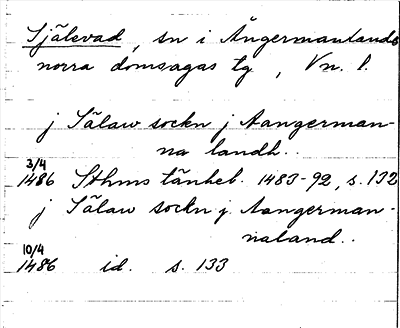 Själevad, sn i Ångermanlands
norra domsagas tg, Vn. l.
j Sälaw sockn j Aangerman-
na landh..
3/4
1486 Sthms tänkeb. 1483-92, s. 132
j Sälaw sockn j Aangerman-
naland..
10/4
1486 id. s. 133